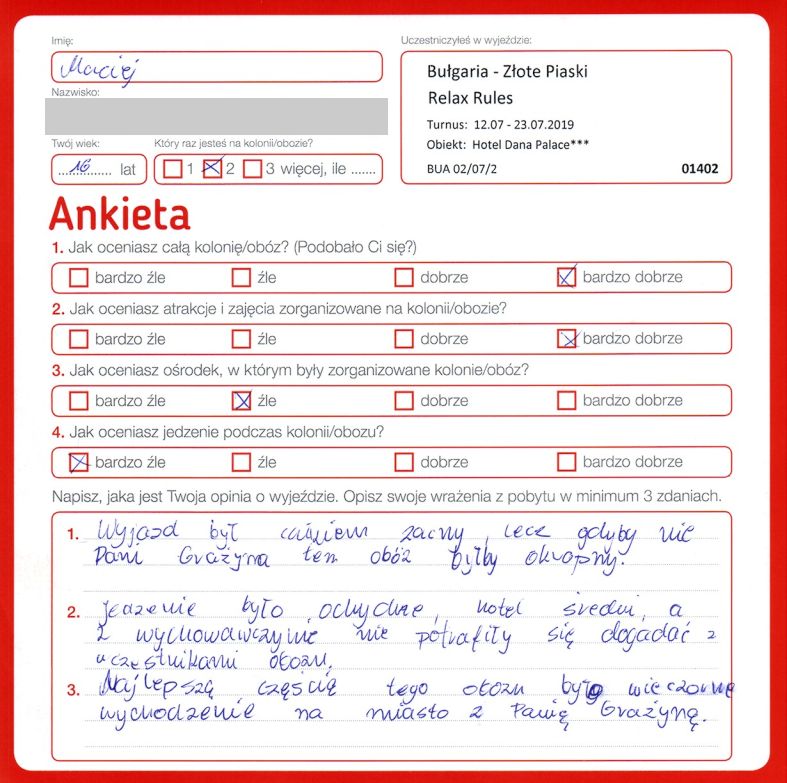 Imię:
Uczestniczyłeś w wyjeździe:
Maciej
Bułgaria - Złote Piaski
Relax Rules
Nazwisko:
Turnus: 12.07 - 23.07.2019
Obiekt: Hotel Dana Palace***
BUA 02/07/2 01402
Twój wiek:
Który raz jesteś na kolonii/obozie?
16 lat
1 2 3 więcej, ile .......
Ankieta
1. Jak oceniasz całą kolonię/obóz? (Podobało Ci się?)
bardzo źle źle dobrze bardzo dobrze
2. Jak oceniasz atrakcje i zajęcia zorganizowane na kolonii/obozie?
bardzo źle źle dobrze bardzo dobrze
3. Jak oceniasz ośrodek, w którym były zorganizowane kolonie/obóz?
bardzo źle źle dobrze bardzo dobrze
4. Jak oceniasz jedzenie podczas kolonii/obozu?
bardzo źle źle dobrze bardzo dobrze
Napisz, jaka jest Twoja opinia o wyjeździe. Opisz swoje wrażenia z pobytu w minimum 3 zdaniach.
1. Wyjazd był zacny, lecz gdyby nie
Pani Grażyna ten obóz byłby okropny.
2. Jedzenie było ochydne, hotel średni, a
2 wychowawczynie nie potrafiły się dogadać z
uczestnikami obozu.
3. Najlepszą częścią tego obozu było wieczorne
wychodzenie na miasto z Panią Grażyną.